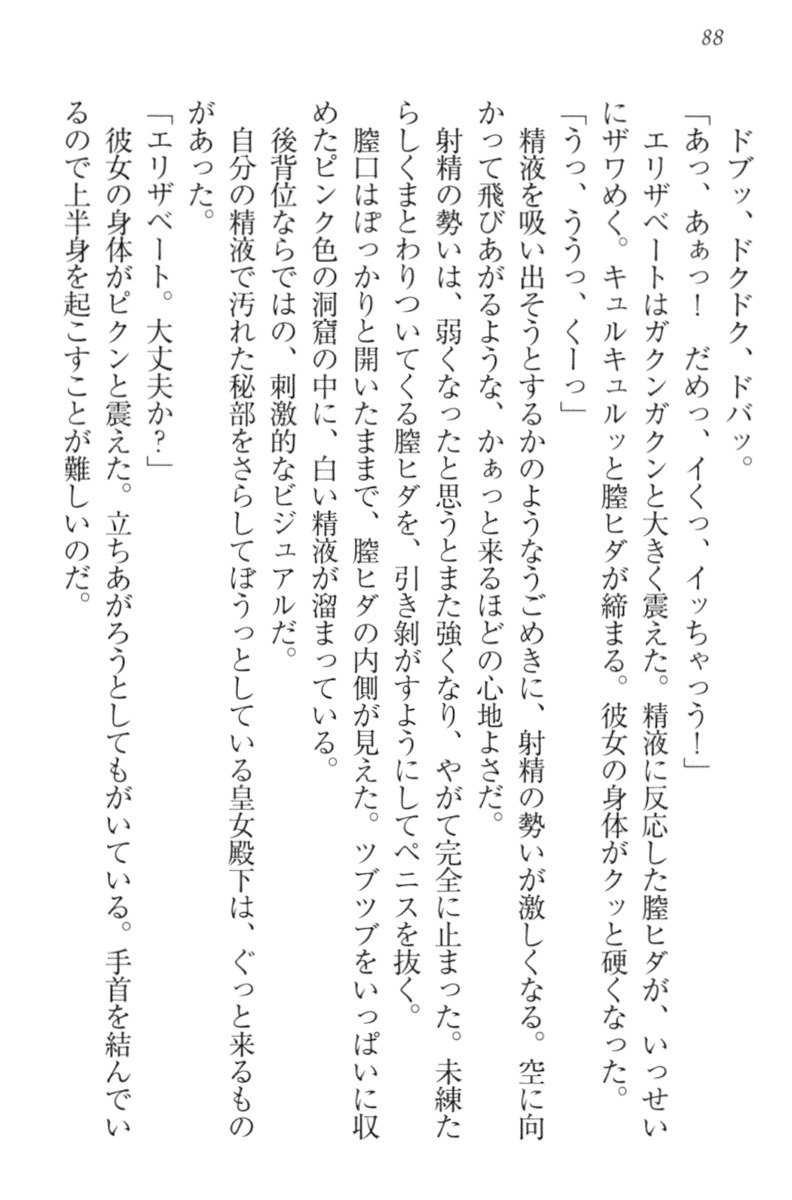 88
ドブッ、ドクドク、ドバッ。
「あっ、あぁっ！　だめっ、イくっ、イッちゃっう！」
エリザベートはガクンガクンと大きく震えた。精液に反応した膣ヒダが、いっせい
にザワめく。キュルキュルッと膣ヒダが締まる。彼女の身体がクッと硬くなった。
「うっ、ううっ、くーっ」
精液を吸い出そうとするかのようなうごめきに、射精の勢いが激しくなる。空に向
かって飛びあがるような、かぁっと来るほどの心地よさだ。
射精の勢いは、弱くなったと思うとまた強くなり、やがて完全に止まった。未練た
らしくまとわりついてくる膣ヒダを、引き剝がすようにしてペニスを抜く。
膣口はぽっかりと開いたままで、膣ヒダの内側が見えた。ツブツブをいっぱいに収
めたピンク色の洞窟の中に、白い精液が溜まっている。
後背位ならではの、刺激的なビジュアルだ。
自分の精液で汚れた秘部をさらしてぼうっとしている皇女殿下は、ぐっと来るもの
があった。
「エリザベート。大丈夫か？」
彼女の身体がピクンと震えた。立ちあがろうとしてもがいている。手首を結んでい
るので上半身を起こすことが難しいのだ。